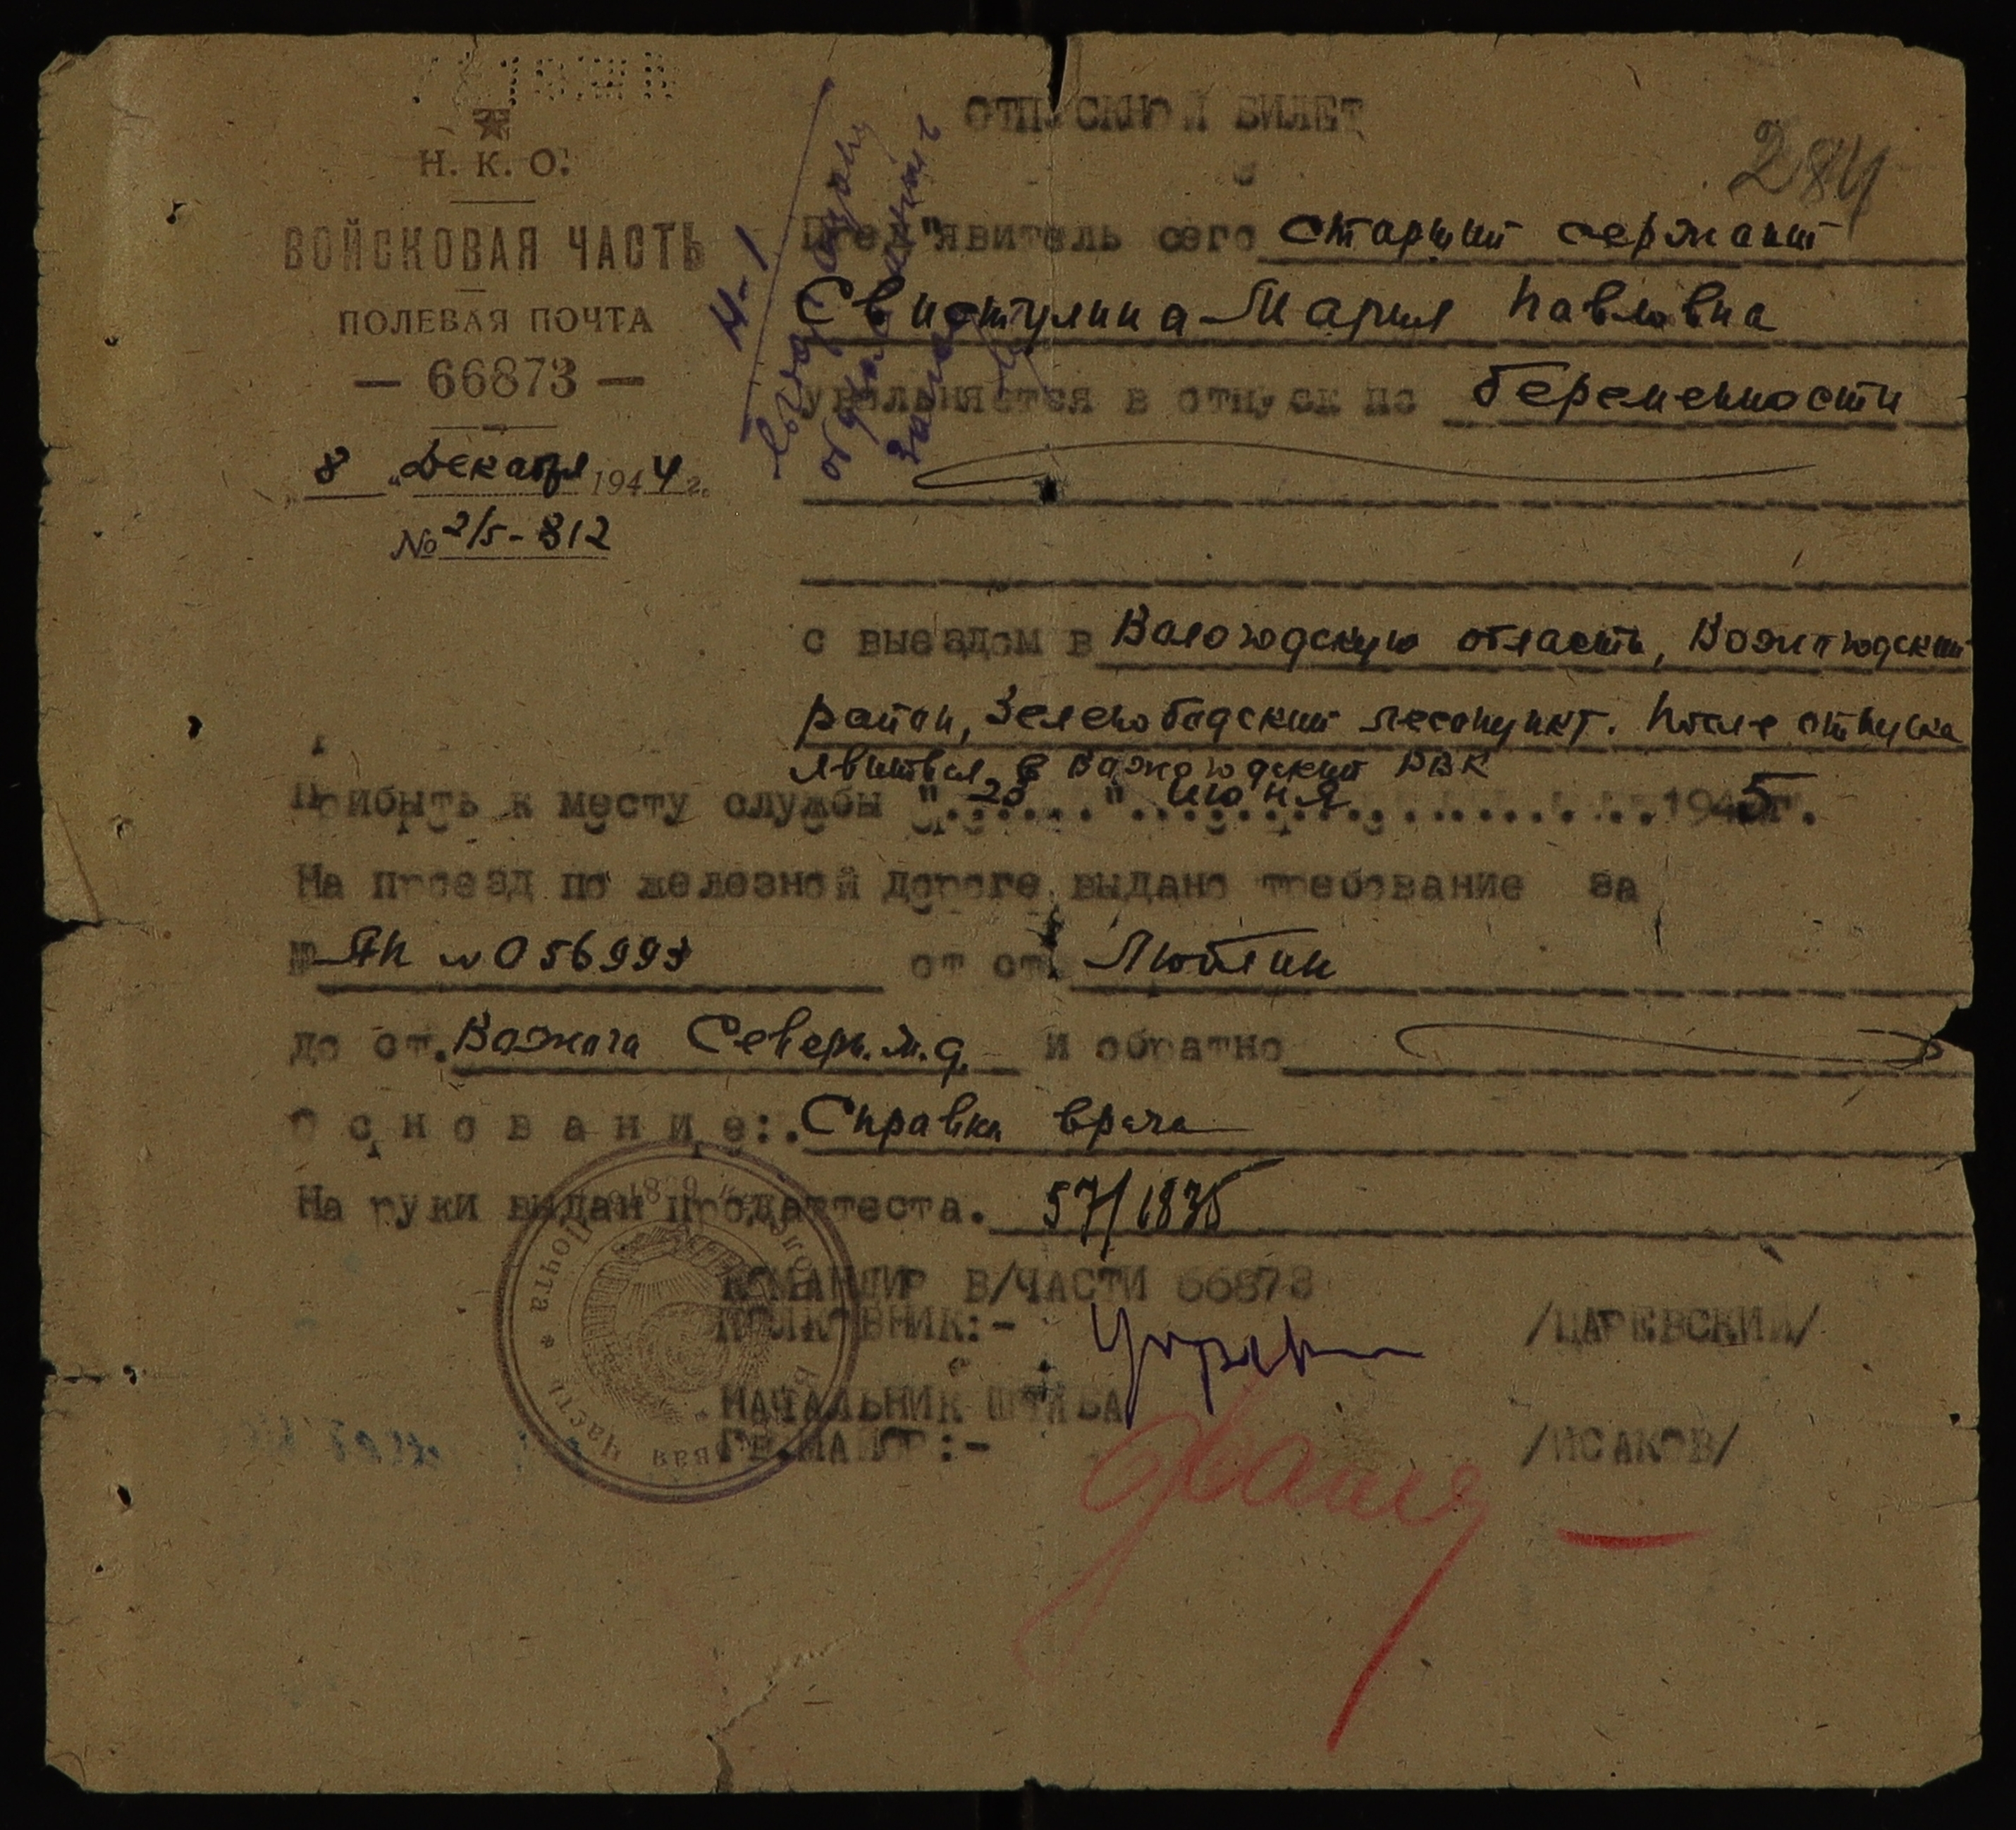 Н. К. О.
ВОЙСКОВАЯ ЧАСТЬ
ПОЛЕВАЯ ПОЧТА
— 66873 —
„ 8 “ Декабря 1944 г.
№ 2/5-812
ОТПУСКНОЙ БИЛЕТ
284
Н-1
Пред"явитель сего старший сержант
Свистулина Мария Павловна
увольняется в отпуск по беременности
с выездом в Вологодскую область, Вожегодский
район, Зеленобадский лесопункт. После отпуска
явиться в Вожегодский РВК
Прибыть к месту службы "20" июня 1945г.
На проезд по железной дороге выдано требование за
№ ЯК № 056993 от ст. Люблин
до ст. Вожега Северн. ж.д. и обратно
Основание: Справка врача
На руки выдан продаттеста. 57/1835
КОМАНДИР В/ЧАСТИ 66873
ПОЛКОВНИК:- /ЦАРЕВСКИЙ/
НАЧАЛЬНИК ШТАБА
ГВ.МАЙОР:- /ИСАКОВ/
Полевая Почта * Войсковая Часть *